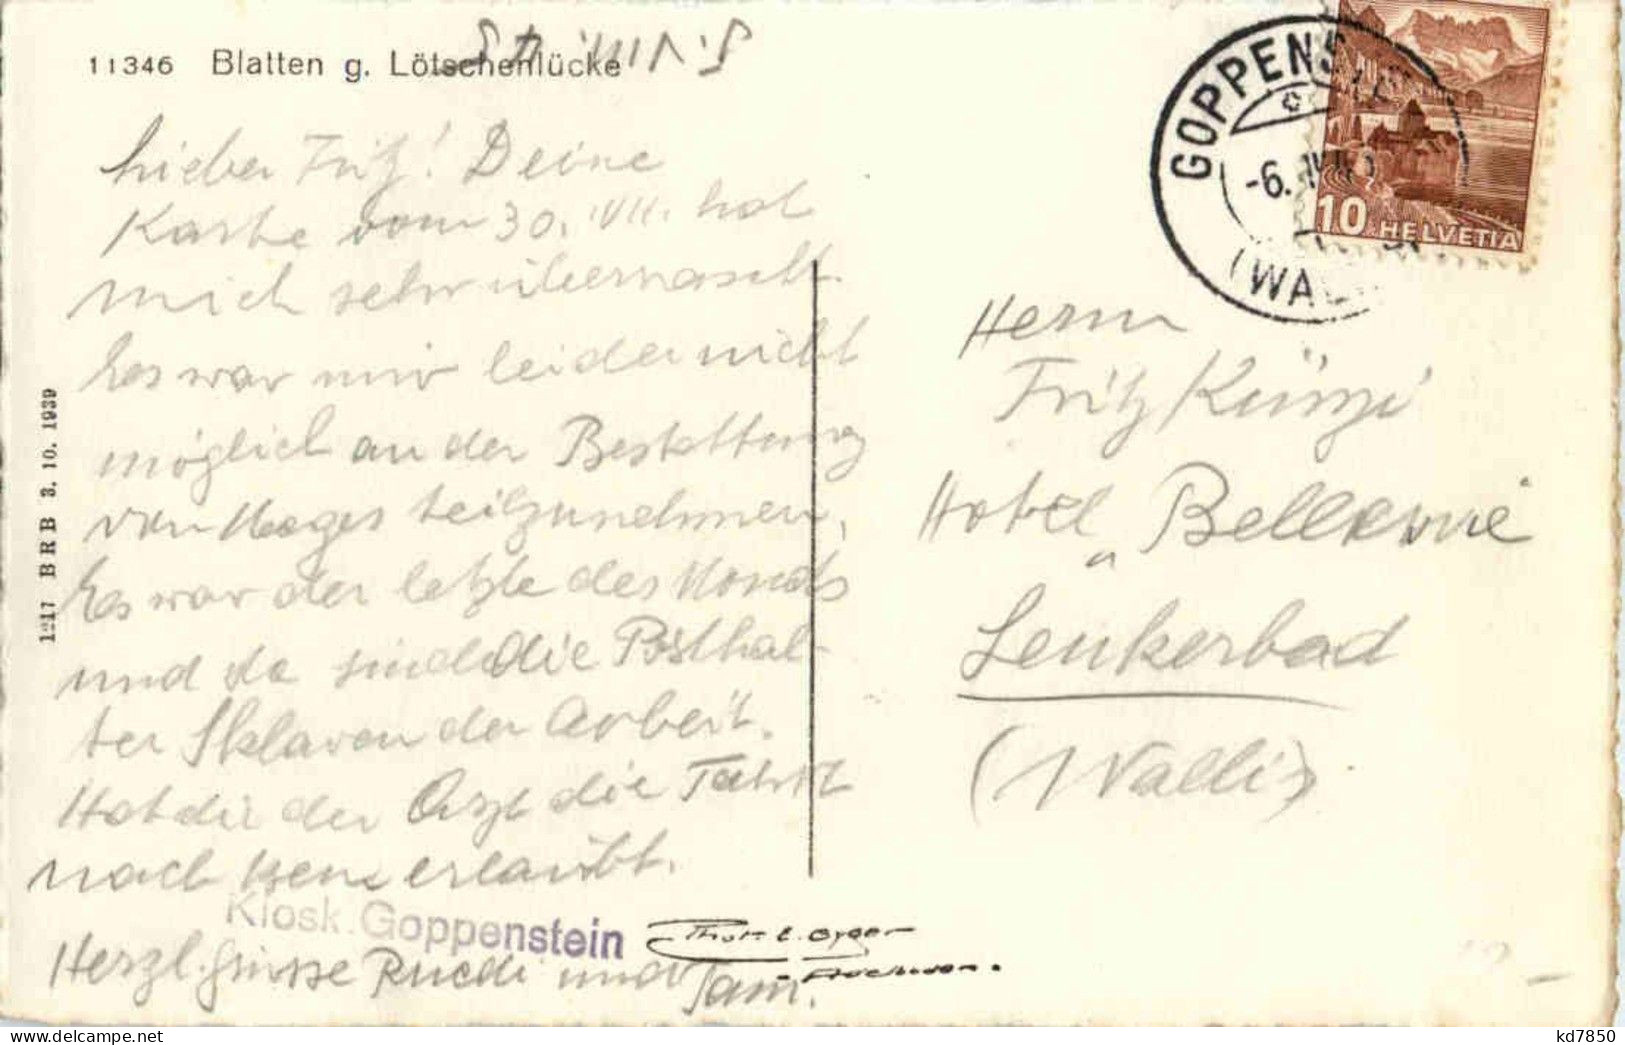 11346 Blatten g. Lötschenlücke
5. VIII. 43
Lieber Fritz! Deine
Karte vom 30. VII. hat
mich sehr überrascht.
Es war mir leider nicht
möglich an der Bestattung
von teilzunehmen,
Es war der letzte des Monats
und da sind die Posthal-
ter Sklaven der Arbeit.
Hat dir der Arzt die Fahrt
nach erlaubt.
Kiosk Goppenstein
Herzl. Grüsse Ruedi und Fam.
Phot. E. Gyger
Adelboden.
1217 BRB 3. 10. 1939
GOPPENSTEIN
-6.
(WALLIS)
10 HELVETIA
Herrn
Fritz Künzi
Hotel Bellevue
Leukerbad
(Wallis)
kd7850